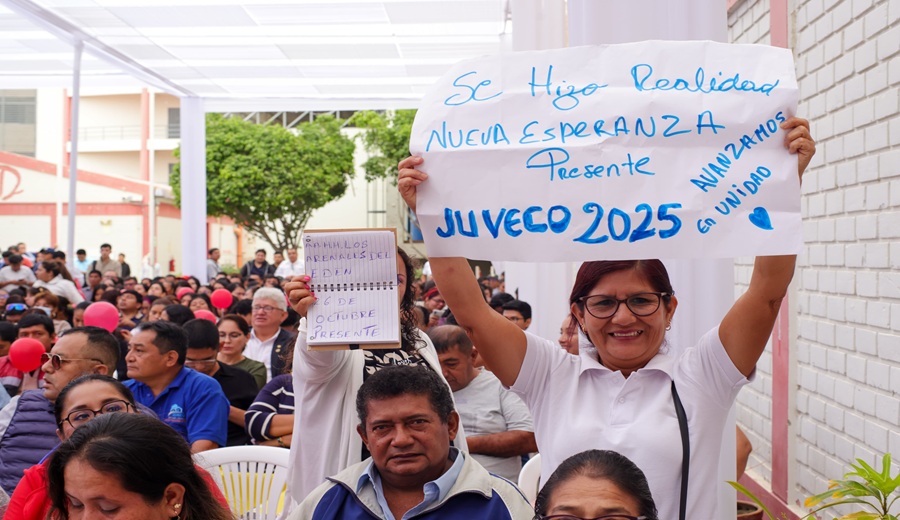 Se Hizo Realidad
NUEVA ESPERANZA
Presente
JUVECO 2025
AVANZAMOS
EN UNIDAD
ARENALES DEL
EDEN
DE
OCTUBRE
PRESENTE